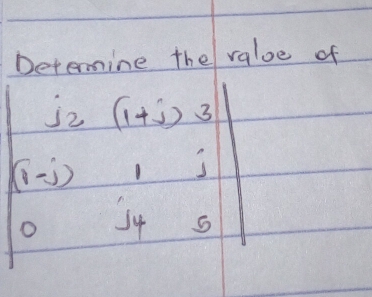 Determine the value of
| j2 (1+j) 3 |
| (1-j) 1 j |
| 0 j4 5 |